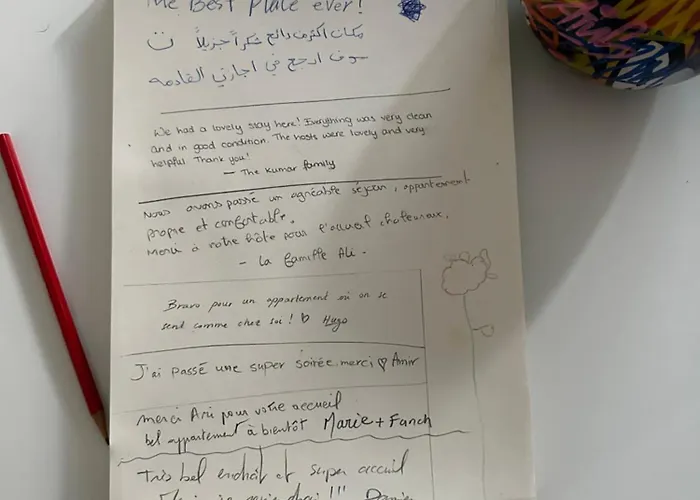 The Best Place ever!
مكان أكثر من رائع شكراً جزيلاً
سوف ارجع في اجازتي القادمه
We had a lovely stay here! Everything was very clean
and in good condition. The hosts were lovely and very
helpful. Thank you!
— The Kumar family
Nous avons passé un agréable séjour, appartement
propre et confortable.
Merci à notre hôte pour l'accueil chaleureux.
- La famille Ali -
Bravo pour un appartement où on se
send comme chez soi! Hugo
J'ai passé une super soirée, merci ♡ Amir
merci Ari pour votre accueil
bel appartement à bientôt Marie + Fanch
Très bel endroit et super accueil
!!!